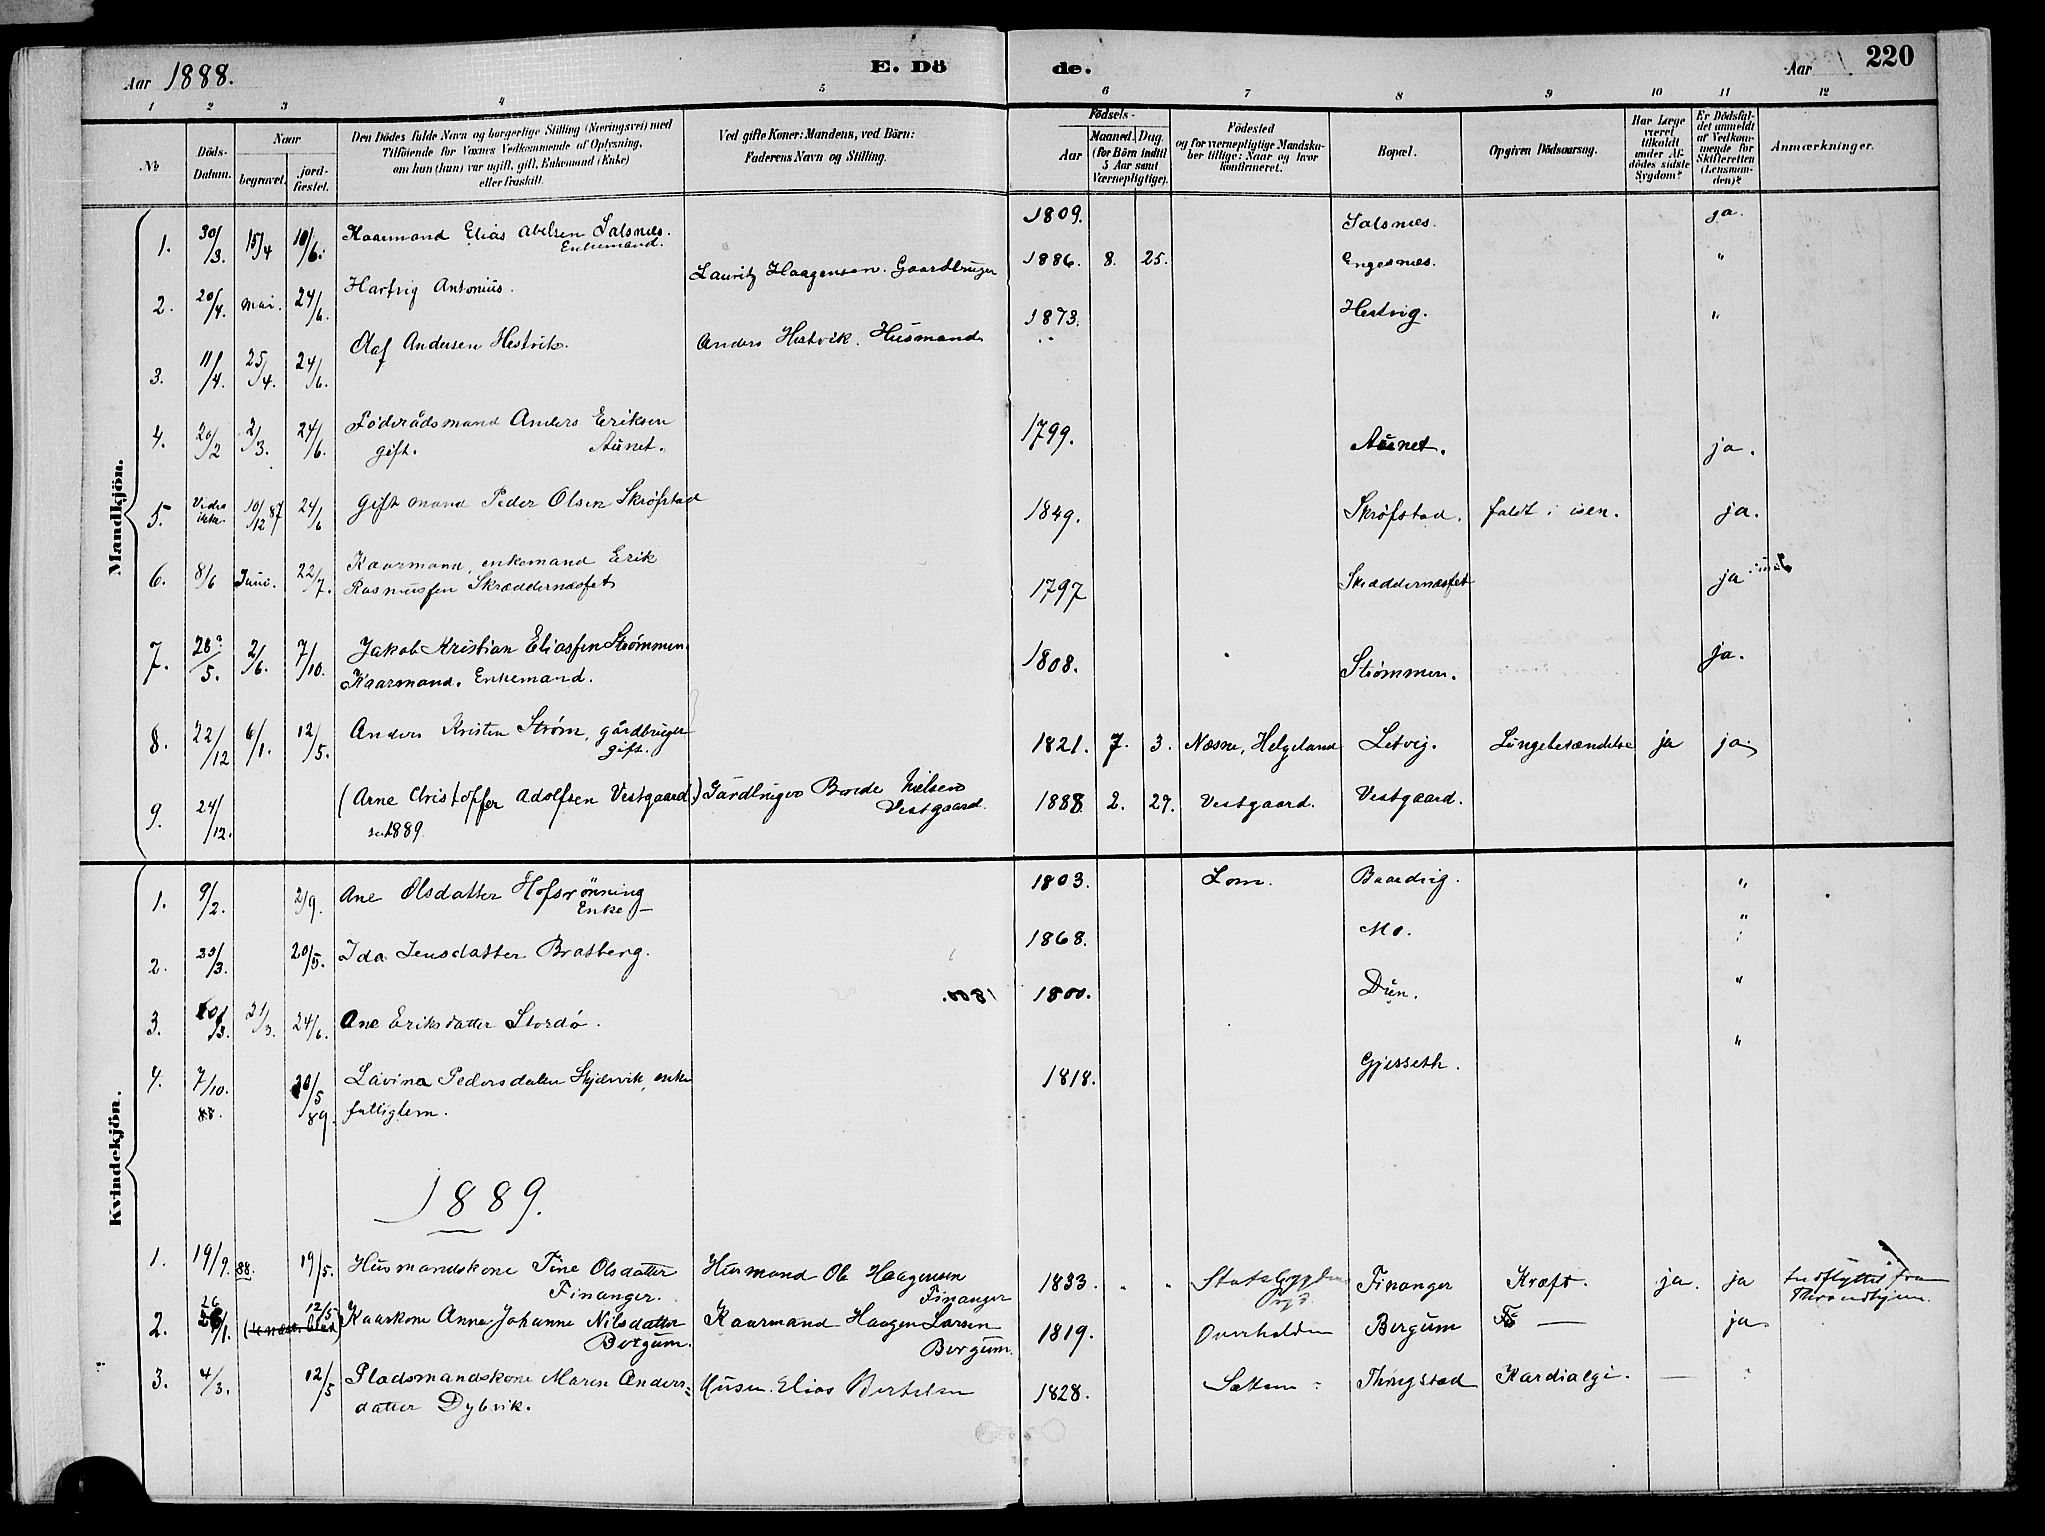 Aar 1888. E. Dö de. Aar 220
1 2 3 4 5 6 7 8 9 10 11 12
№
Döds-Datum.
Naar
begravet.
jord-fæstet.
Den Dödes fulde Navn og borgerlige Stilling (Næringsvei) med
Tilföiende for Voxnes Vedkommende af Oplysning,
om han (hun) var ugift, gift, Enkemand (Enke)
eller fraskilt.
Ved gifte Koner: Mandens, ved Börn:
Faderens Navn og Stilling.
Födsels-
Aar
Maaned. Dag.
(for Börn indtil
5 Aar samt
Værnepligtige).
Födested
og for værnepligtige Mandska-
ber tillige: Naar og hvor
konfirmeret.
Bopæl.
Opgiven Dödsaarsag.
Har Læge
været
tilkaldt
under Af-
dödes sidste
Sygdom?
Er Dödsfal-
det anmeldt
af Vedkom-
mende for
Skifteretten
(Lensman-
den)?
Anmærkninger.
Mandkjön.
1. 30/3. 15/4 10/6. Kaarmand Elias Abelsen Salsnæs. 1809. Salsnæs. ja.
Enkemand.
2. 20/4. mai. 24/6. Hartvig Antonius. Lauritz Haagensen. Gaardbruger 1886. 8. 25. Engesnæs. "
3. 11/4. 25/4. 24/6. Olaf Andersen Hestvik. Anders Hestvik. Husmand 1873. Hestvig. "
4. 20/2 2/3. 24/6. Föderådsmand Anders Eriksen 1799. Aunet. ja.
gift. Aunet.
5. Vides ikke. 10/12 87 24/6 Gift mand Peder Olsen Skröfstad 1849. Skröfstad. faldt i isen. ja.
6. 8/6 Juni. 22/7. Kaarmand, enkemand Erik
Rasmussen Skræddernæsset 1797 Skræddernæsset ja
7. 28?/5. 2/6. 7/10. Jakob Kristian Eliassen Strømmen. 1808. Strømmen. ja.
Kaarmand. Enkemand.
8. 22/12 6/1. 12/5. Anders Kristen Strøm, gårdbruger 1821. 7. 3. Næsne, Helgeland Letvig. Lungebetændelse ja ja
gift.
9. 24/12. (Arne Christoffer Adolfsen Vestgaard.) Gårdbruger Nielsen 1888 2. 29. Vestgaard. Vestgaard.
Vestgaard.
1889.
Kvindekjön.
1. 9/2. 2/9. Ane Olsdatter Hofsrönning 1803. Lom. Baardvig. "
Enke –
2. 23/3. 20/5. Ida Jensdatter Bratberg. 1868. Mo. "
3. 31/3. 24/6. Ane Eriksdatter Stordö. 1800. Dun. "
4. 7/10. 88. 20/5 89. Lavina Pedersdatter enke 1818. Gjesseth. "
fattiglem.
1889.
1. 19/9. 88. 19/5. Husmandskone Tine Olsdatter Husmand Ole Haagensen 1833. Finanger Kræft. ja. ja Indflyttet fra
Finanger. Finanger Throndhjem.
2. 26/1. 12/5 Kaarkone Anne Johanne Nilsdatter Kaarmand Haagen Larsen 1819. Overhalden Bergum – ja
Bergum. Bergum.
3. 4/3. 12/5 Pladsmandskone Maren Anders- Husm. Elias Bertelsen 1828. Thingstad Kardialgi. –
datter Dybvik.